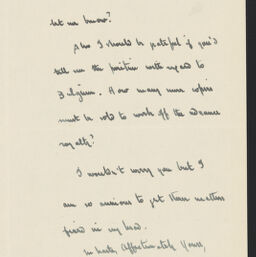 let me know?
Also I should be grateful if you'd
tell me the position with regard to
Belgium. How many more copies
must be sold to work off the advance
royalty?
I wouldn't worry you but I
am so anxious to get these matters
fixed in my head.
In haste, Affectionately Yours,